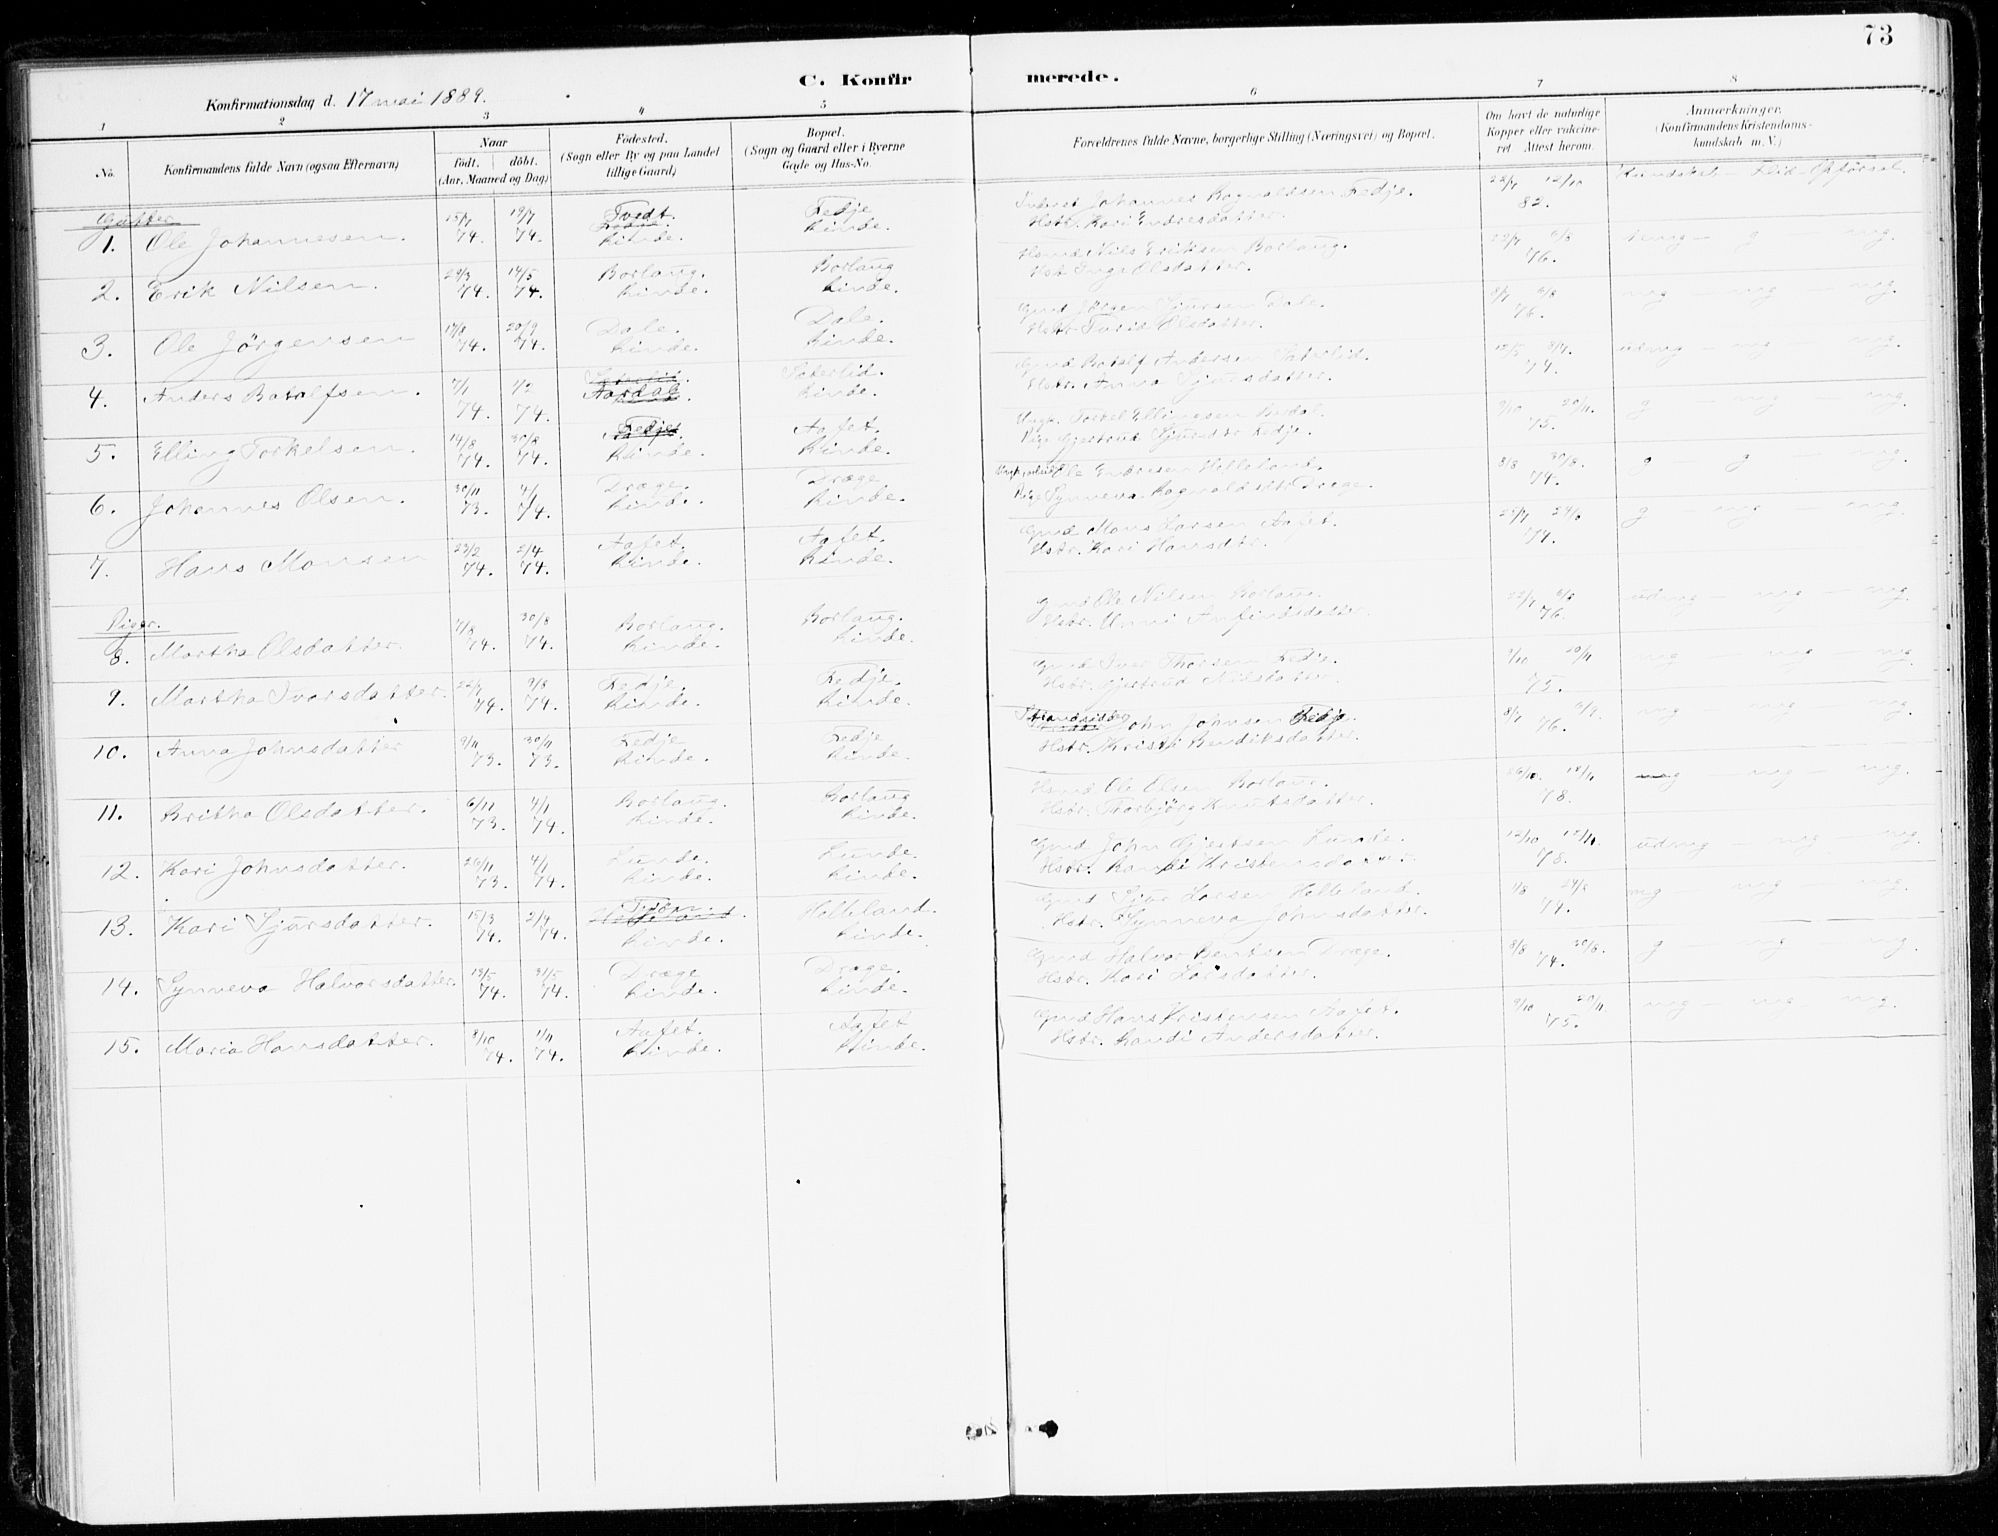 73
C. Konfirmerede.
Konfirmationsdag d. 17 mai 1889.
1 2 3 4 5 6 7 8
No. Konfirmandens fulde Navn (ogsaa Efternavn)
Naar født. døbt. (Aar, Maaned og Dag)
Fødested. (Sogn eller By og paa Landet tillige Gaard)
Bopæl. (Sogn og Gaard eller i Byerne Gade og Hus-No.
Forældrenes fulde Navne, borgerlige Stilling (Næringsvei) og Bopæl.
Om havt de naturlige Kopper eller vakcineret. Attest herom.
Anmærkninger. (Konfirmandens Kristendomskundskab m. V.)
Kundskab - Flid - Opførsel.
Gutter
1. Ole Johannesen. 15/7 74. 19/7 74. Tvedt Rinde. Fedje Rinde. Johannes Rognaldsen Fedje. Hstr. Kari Endresdatter. 22/7 12/10 82.
2. Erik Nilsen. 29/3 74. 14/5 74. Borlaug. Rinde. Borlaug Rinde. Hsmd Nils Eriksen Borlaug. Hst Inga Olsdatter. 76. g - mg
3. Ole Jørgensen 17/8 74. 20/9 74. Dale. Rinde. Dale. Rinde. Gmd Jørgen Sjursen Dale. Hstr Turid Olsdatter. 8/7 6/8 76. mg - mg - mg
4. Anders Botolfsen. 7/1 74. 1/2 74. Aardal Sæterlid. Rinde. Gmd Botolf Andersen Sæterlid. Hstr. Anna Sjursdatter. 74. udmg - mg - mg
5. Elling Torkelsen. 14/8 74. 30/8 74. Fedje Rinde. Aafet. Rinde. Ungk. Torkel Ellingsen Pige Gjertrud Sjursdtr Fedje. 9/10 20/11 75. g - mg - mg
6. Johannes Olsen. 30/11 73. 4/1 74. Dræge. Rinde. Dræge Rinde. Ole Endresen Helleland. Pige Synneva Rognaldsdtr Dræge. 8/8 30/8 74. g g - mg
7. Hans Monsen 23/2 74. 2/4 74. Aafet. Rinde. Aafet. Rinde. Gmd Mons Larsen Aafet. Hstr. Kari Hansdtr. 74. g - mg - mg
Piger.
8. Martha Olsdatter. 7/8 74. 30/8 74. Borlaug. Rinde. Borlaug. Rinde. Gmd Ole Nilsen Borlaug. Hstr. Unni Anfindsdatter. 22/7 6/8 76. udmg - mg - mg
9. Martha Iversdatter. 22/7 74. 9/8 74. Fedje. Rinde. Fedje. Rinde. Gmd Iver Thorsen Fedje. Hstr. Gjertrud Nilsdatter. 9/10 20/11 75. mg - mg - mg
10. Anna Johnsdatter 9/11 73. 30/11 73. Fedje Rinde. Fedje Rinde. Strandsidder John Johnsen Fedje. Hstr. Kristi Bendiksdatter. 8/7 76. mg - mg - mg.
11. Britha Olsdatter. 6/11 73. 4/1 74. Borlaug. Rinde. Borlaug Rinde. Hsmd Ole Olsen Borlaug. Hstr. Thorbjørg Knutsdatter. 26/10. 78. mg mg - mg.
12. Kari Johnsdatter. 26/11 73. 4/1 74. Lunde. Rinde. Lunde. Rinde. Gmd John Gjertsen Lunde. Hstr. Randi Kristensdatter. 12/10 78. udmg - mg - mg.
13. Kari Sjursdatter. 15/3 74. 2/4 74. Rinde. Helleland. Rinde. Gmd Sjur Larsen Helleland. Hstr. Synneva Johnsdatter. 1/8 74. mg - mg mg.
14. Synneva Halvorsdatter. 13/5 74. 31/5 74. Dræge Rinde. Dræge. Rinde. Gmd Halvor Bentsen Dræge. Hstr. Kari Larsdatter. 8/8 30/8. 74. g mg mg
15. Maria Hansdatter. 8/10 74. 1/11 74. Aafet. Rinde. Aafet Rinde. Gmd Hans Kristensen Aafet. Hstr. Randi Andersdatter. 9/10 20/11 75. mg mg mg.